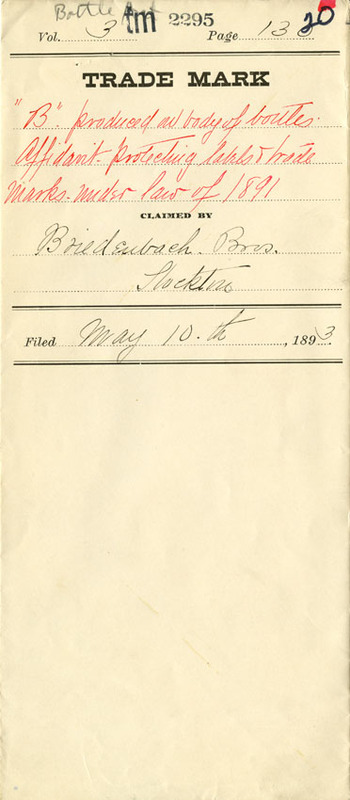 Bottle
tm 2295 20
Vol. 3 Page 138
TRADE MARK
"B". produced on body of bottles.
Affidavit. protecting labels & trade
marks. under law of 1891
CLAIMED BY
Briedenbach. Bros.
Stockton
Filed May 10.th, 1893.